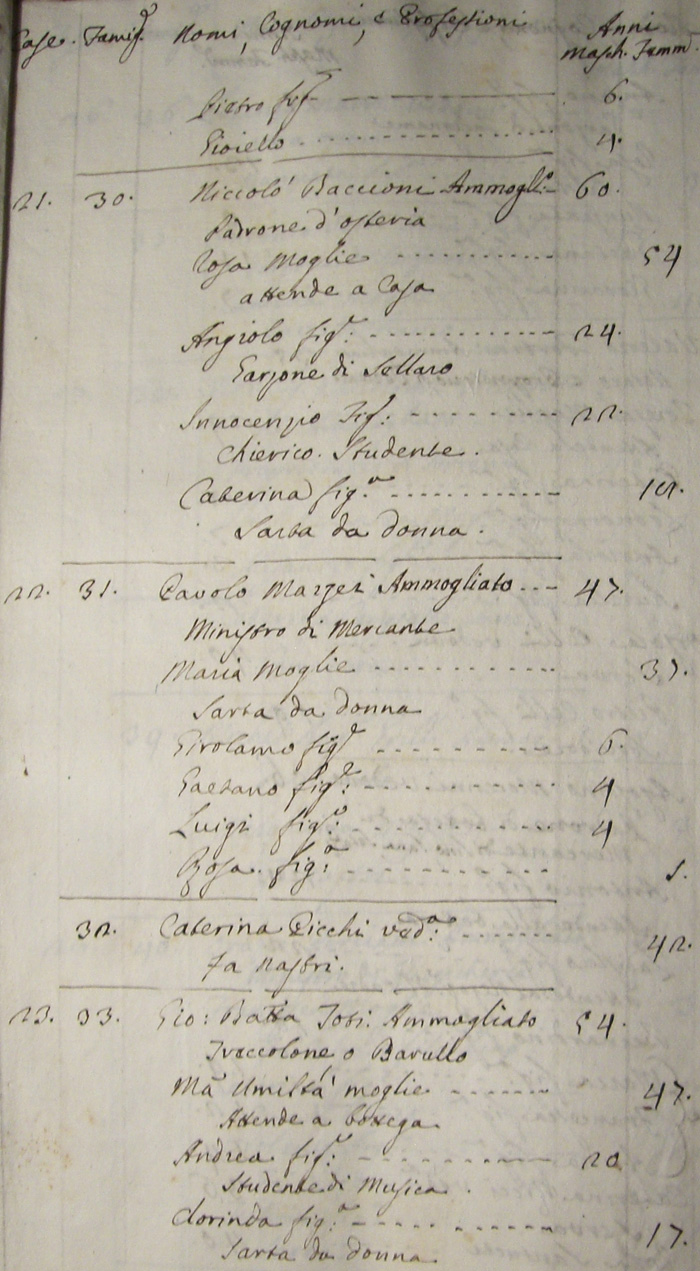 Case. Famig.e Nomi, Cognomi, e Professioni Anni
Masch. Femm.
Pietro fig.o 6.
Gioiello 4.
21. 30. Niccolò Baccioni Ammogl.o 60.
Padrone d'osteria
Rosa Moglie 54
attende a Casa
Angiolo fig.o: 24.
Garzone di Sellaro
Innocenzio Fig: 22.
Chierico. Studente.
Caterina fig.a
Sarta da donna.
22. 31. Pavolo Ammogliato 47.
Ministro di Mercante
Maria Moglie 37.
Sarta da donna
Girolamo fig.o 6.
Gaetano fig.o: 4
Luigi fig.o: 4
Rosa fig.a
32. Caterina Picchi ved.a: 42.
fa nastri.
23. 33. Gio: Batta Ammogliato 54.
Treccolone o Barullo
Ma Umiltà moglie 47.
Attende a bottega
Andrea fig.o: 20
Studente di Musica.
Clorinda fig.a 17.
Sarta da donna